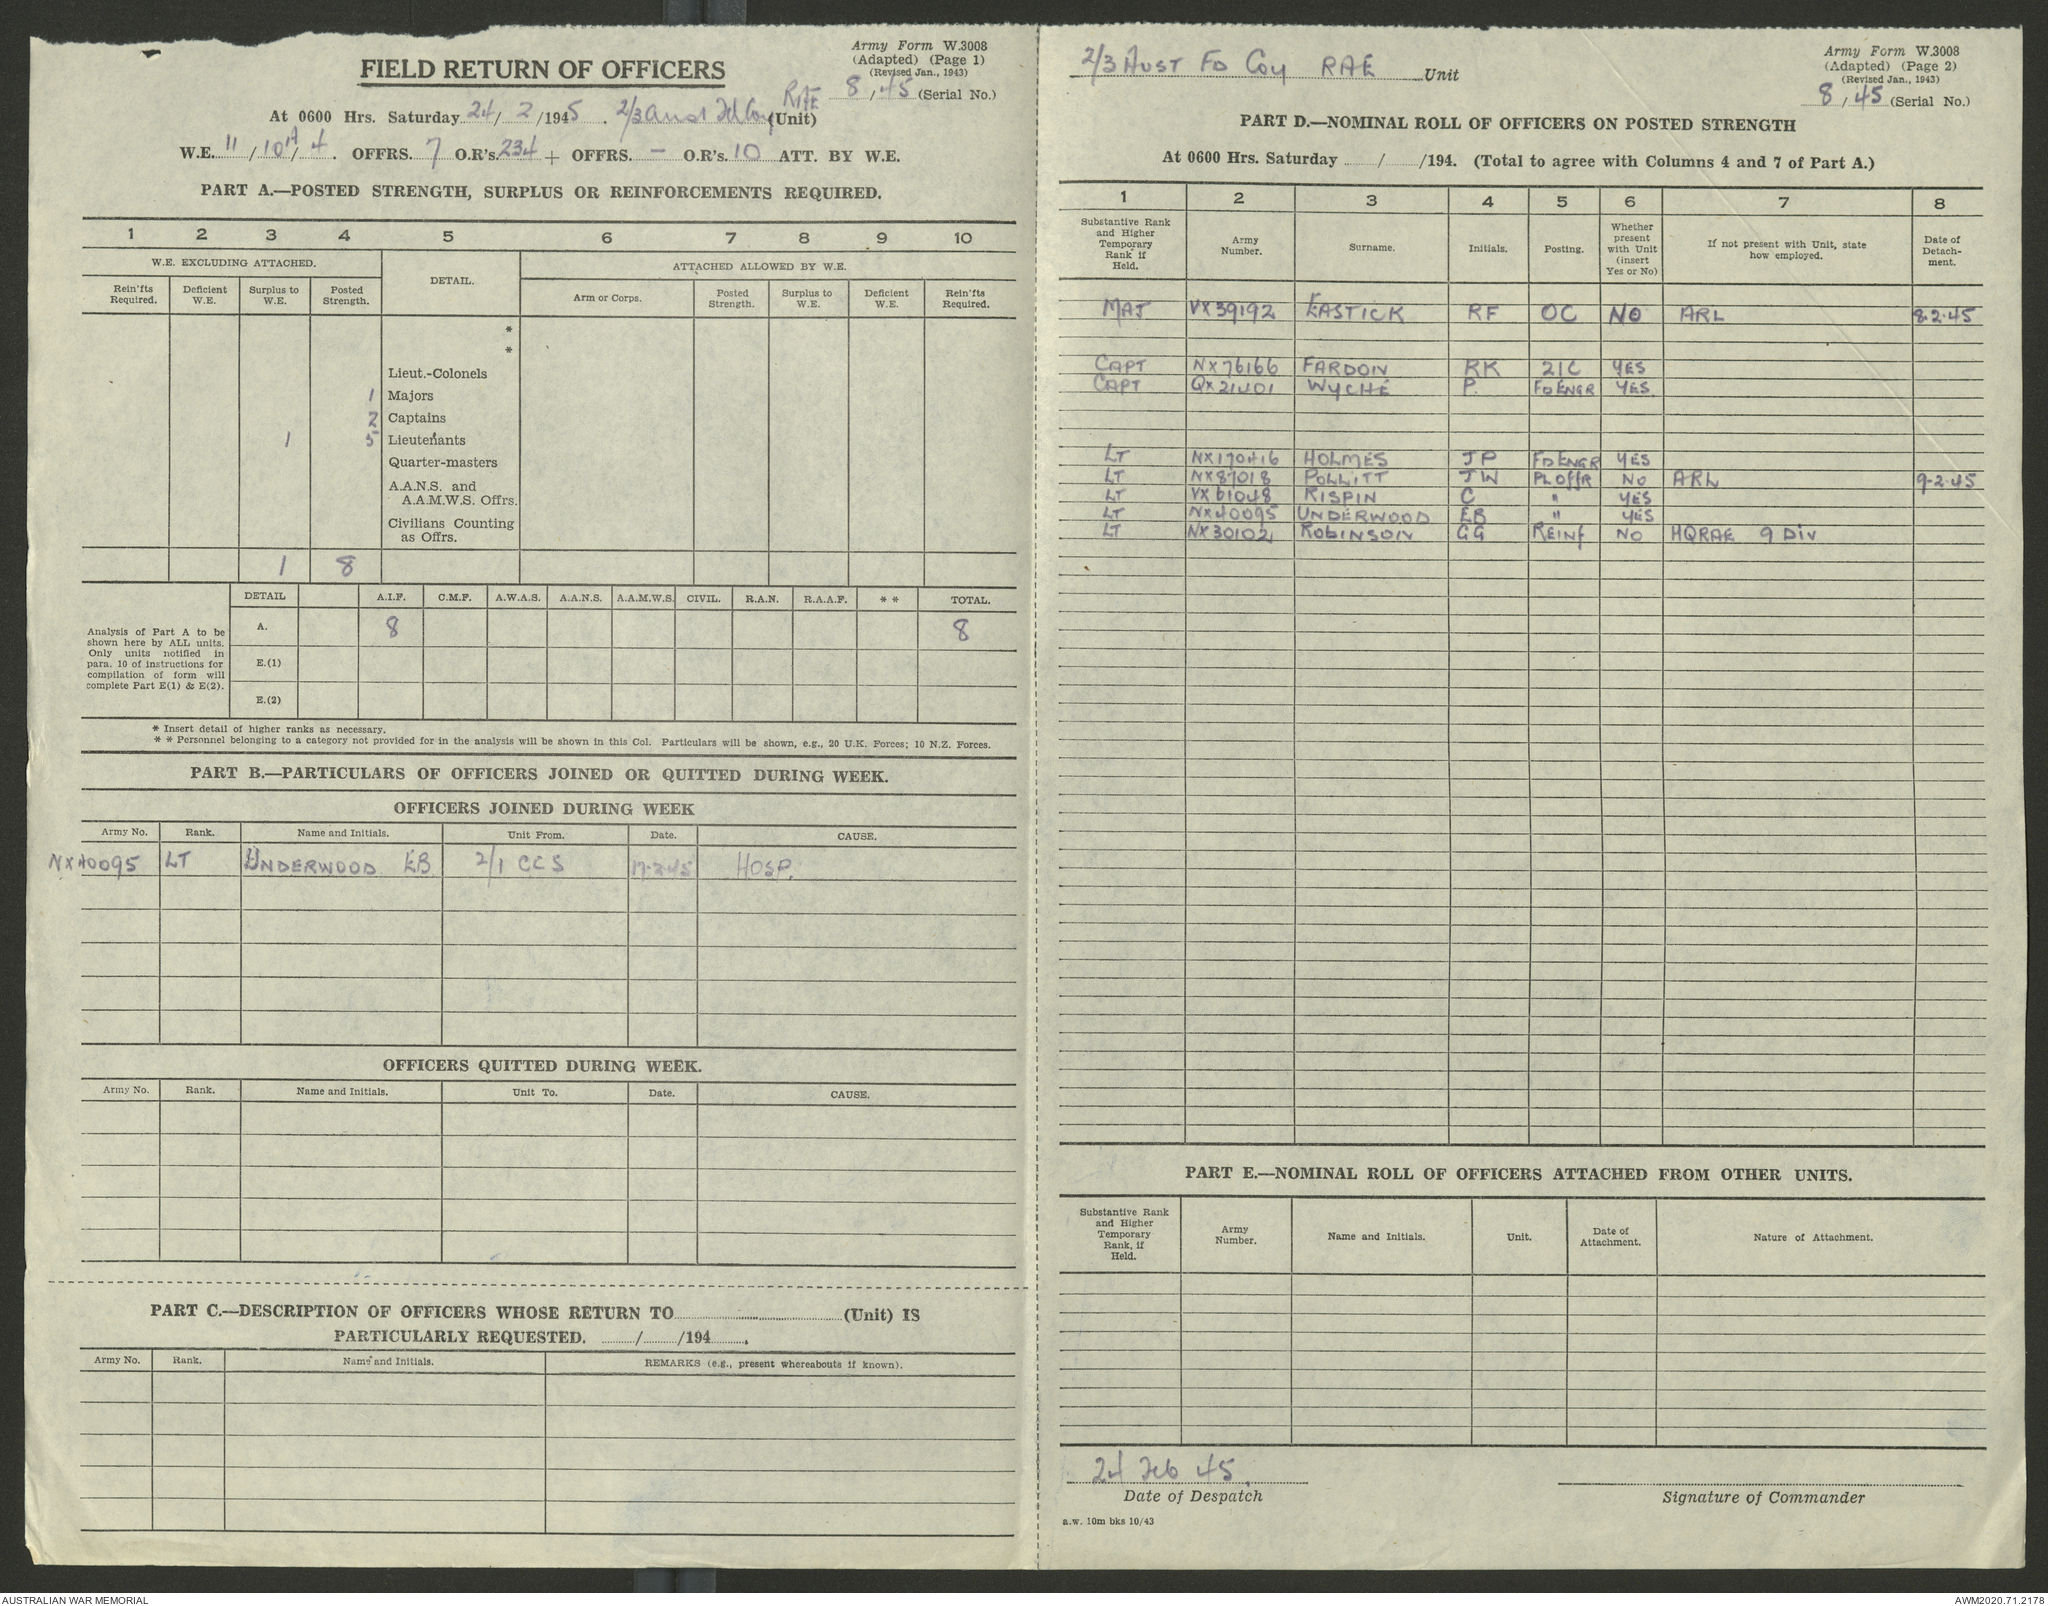 Army Form W.3008
(Adapted) (Page 1)
(Revised Jan., 1943)
FIELD RETURN OF OFFICERS
RAE 8 / 45 (Serial No.)
At 0600 Hrs. Saturday 24/ 2 /1945 . 2/3 Aust Fd Coy (Unit)
W.E. 11 / 10A / 4 . OFFRS. 7 O.R's. 234 + OFFRS. — O.R's. 10 ATT. BY W.E.
PART A.—POSTED STRENGTH, SURPLUS OR REINFORCEMENTS REQUIRED.
1 2 3 4 5 6 7 8 9 10
W.E. EXCLUDING ATTACHED. DETAIL. ATTACHED ALLOWED BY W.E.
Rein'fts Required. Deficient W.E. Surplus to W.E. Posted Strength. Arm or Corps. Posted Strength. Surplus to W.E. Deficient W.E. Rein'fts Required.
*
*
Lieut.-Colonels
1 Majors
2 Captains
1 5 Lieutenants
Quarter-masters
A.A.N.S. and
A.A.M.W.S. Offrs.
Civilians Counting
as Offrs.
1 8
DETAIL A.I.F. C.M.F. A.W.A.S. A.A.N.S. A.A.M.W.S. CIVIL. R.A.N. R.A.A.F. * * TOTAL.
Analysis of Part A to be
shown here by ALL units.
Only units notified in
para. 10 of instructions for
compilation of form will
complete Part E(1) & E(2).
A. 8 8
E.(1)
E.(2)
* Insert detail of higher ranks as necessary.
* * Personnel belonging to a category not provided for in the analysis will be shown in this Col. Particulars will be shown, e.g., 20 U.K. Forces; 10 N.Z. Forces.
PART B.—PARTICULARS OF OFFICERS JOINED OR QUITTED DURING WEEK.
OFFICERS JOINED DURING WEEK
Army No. Rank. Name and Initials. Unit From. Date. CAUSE.
NX40095 LT UNDERWOOD EB 2/1 CCS 17-2-45 HOSP.
OFFICERS QUITTED DURING WEEK.
Army No. Rank. Name and Initials. Unit To. Date. CAUSE.
PART C.—DESCRIPTION OF OFFICERS WHOSE RETURN TO (Unit) IS
PARTICULARLY REQUESTED. / /194 .
Army No. Rank. Name and Initials. REMARKS (e.g., present whereabouts if known).
2/3 AUST FD COY RAE Unit
Army Form W.3008
(Adapted) (Page 2)
(Revised Jan., 1943)
8 / 45 (Serial No.)
PART D.—NOMINAL ROLL OF OFFICERS ON POSTED STRENGTH
At 0600 Hrs. Saturday / /194. (Total to agree with Columns 4 and 7 of Part A.)
1 2 3 4 5 6 7 8
Substantive Rank and Higher Temporary Rank if Held. Army Number. Surname. Initials. Posting. Whether present with Unit (insert Yes or No) If not present with Unit, state how employed. Date of Detach-ment.
MAJ VX39192 EASTICK RF OC NO ARL 8.2.45
CAPT NX76166 FARDON RK 2IC YES
CAPT QX21401 WYCHE P. FD ENGR YES
LT NX170416 HOLMES JP FD ENGR YES
LT NX87018 POLLITT JW PL OFFR NO ARL 9-2-45
LT VX61048 RISPIN C " YES
LT NX40095 UNDERWOOD EB " YES
LT NX30102 ROBINSON GG REINF NO HQRAE 9 DIV
PART E.—NOMINAL ROLL OF OFFICERS ATTACHED FROM OTHER UNITS.
Substantive Rank and Higher Temporary Rank, if Held. Army Number. Name and Initials. Unit. Date of Attachment. Nature of Attachment.
24 Feb 45
Date of Despatch Signature of Commander
a.w. 10m bks 10/43
AUSTRALIAN WAR MEMORIAL AWM2020.71.2178